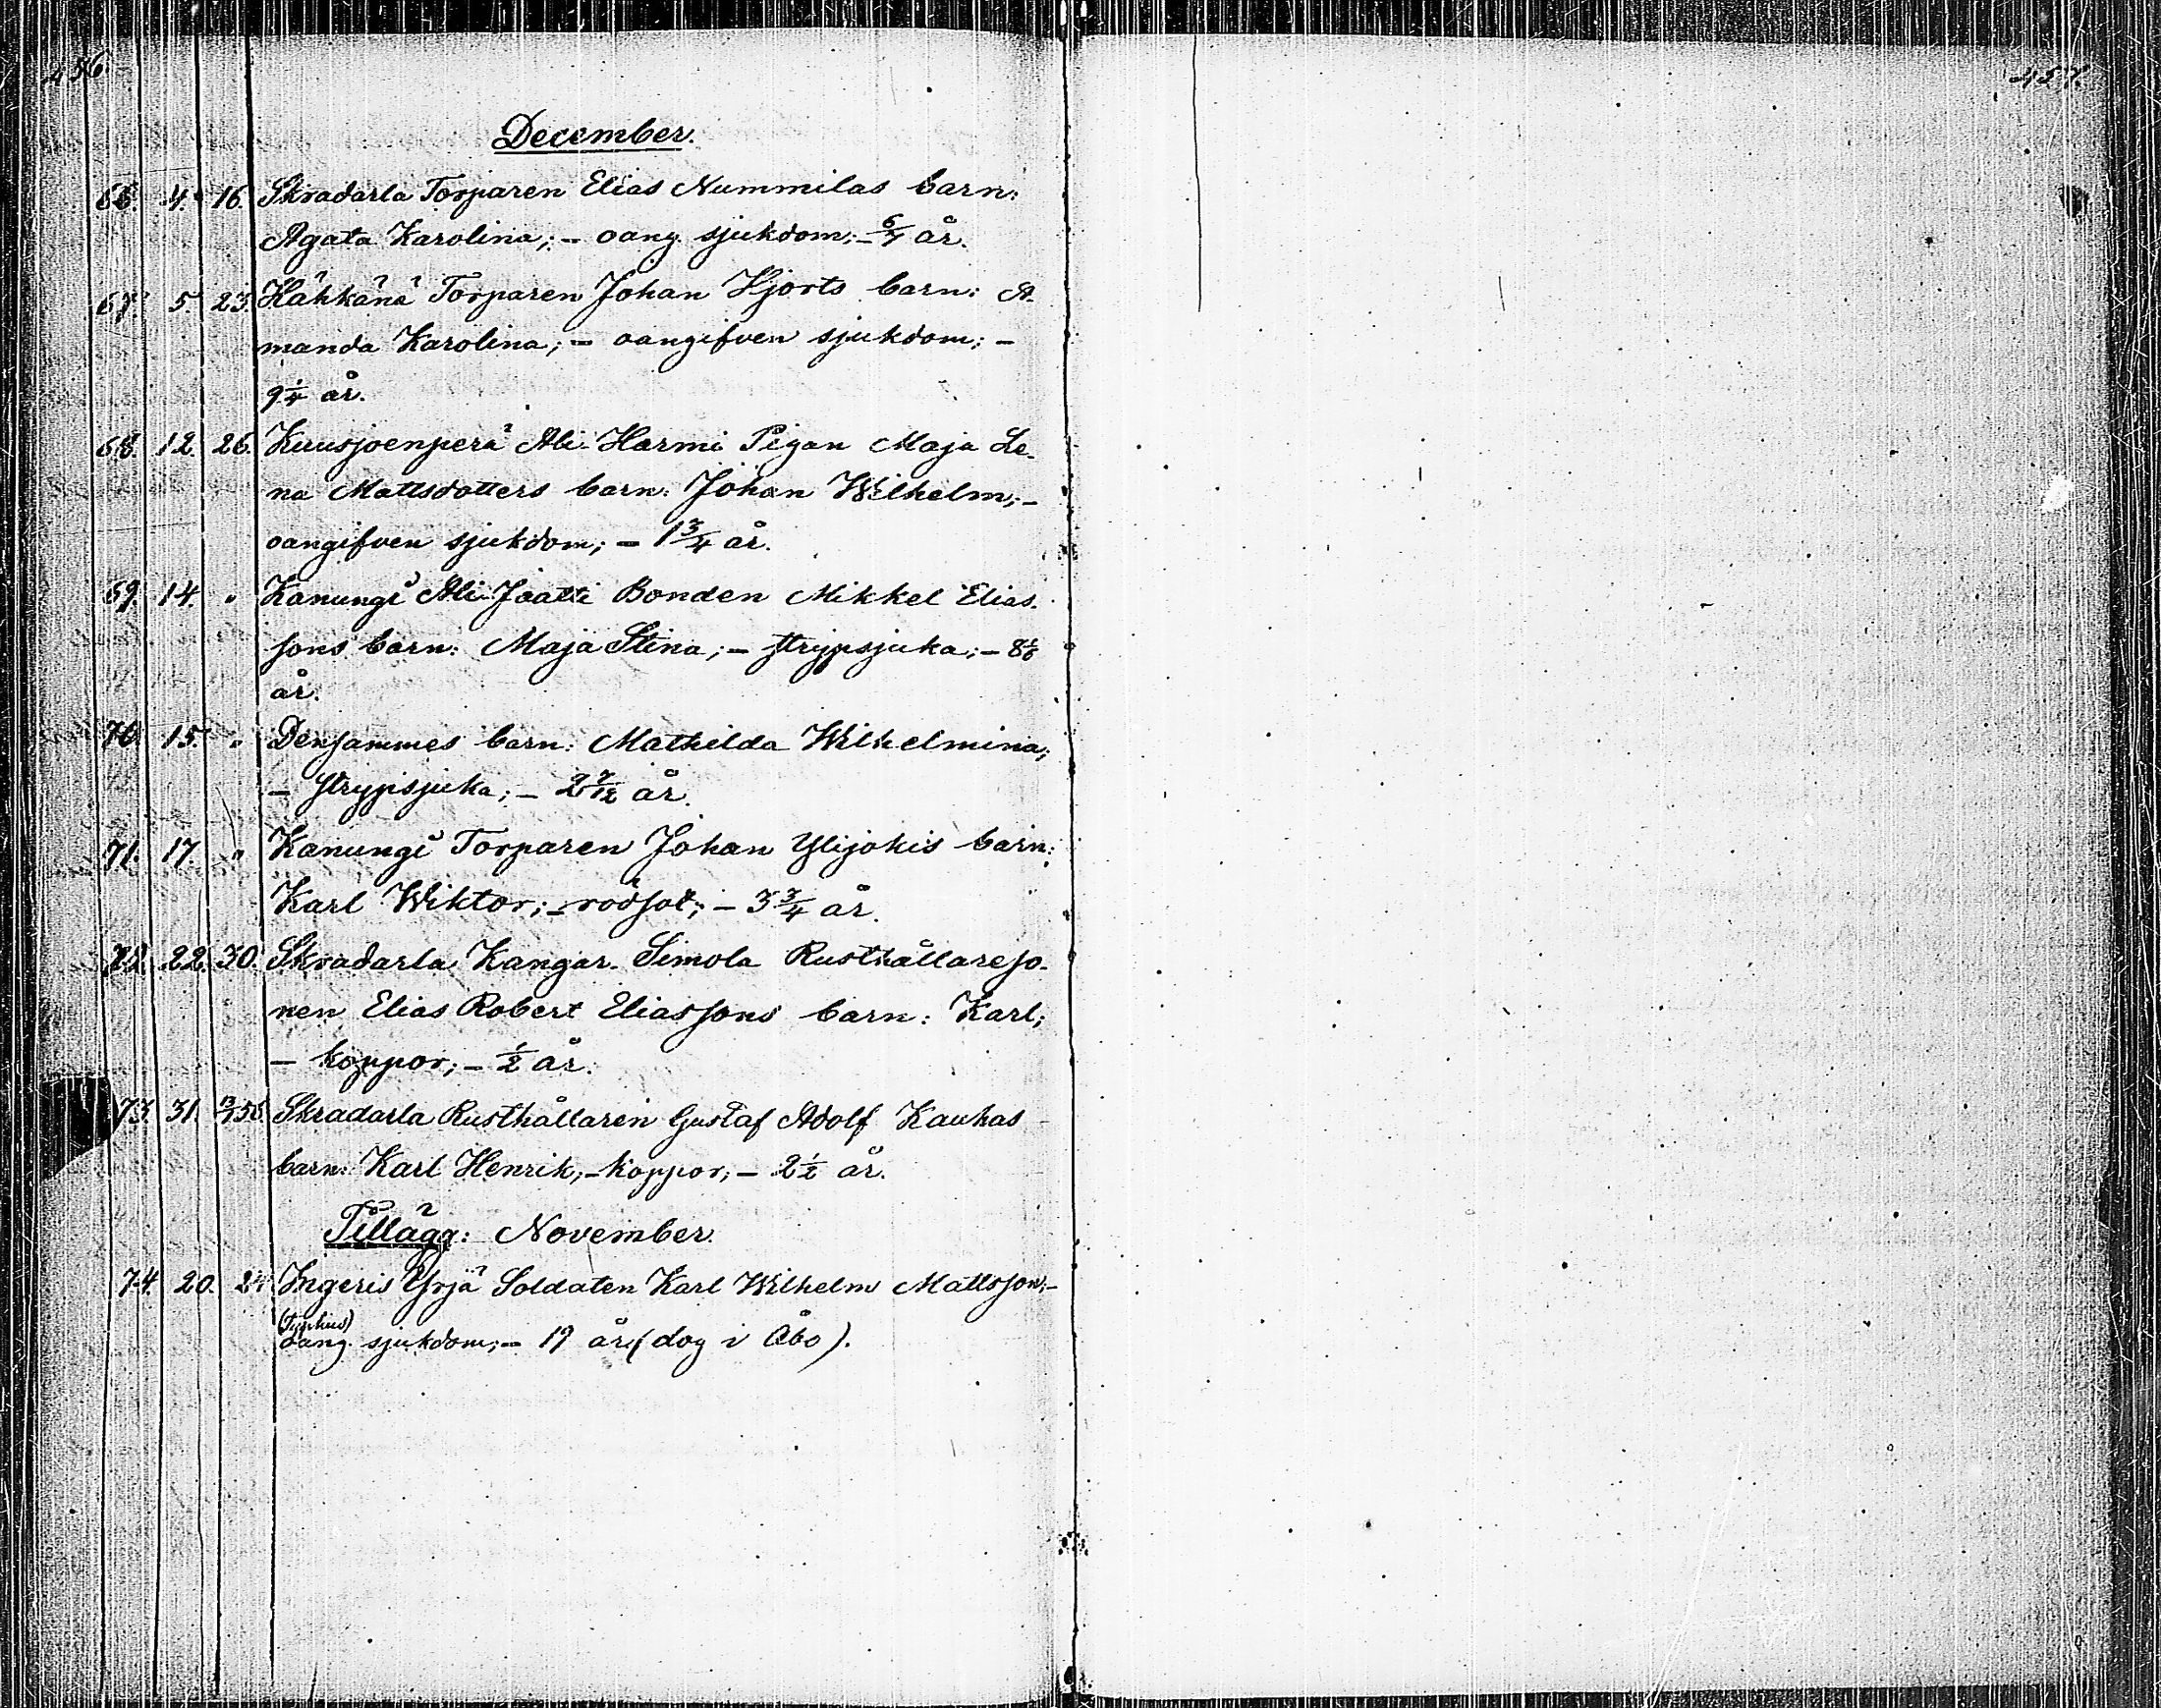 456.
457.
December.
66. 4. 16. Skradarla Torparen Elias Nummilas barn:
Agata Karolina; - oang. sjukdom; - 6/7 år.
67. 5. 23. Hähkänä Torparen Johan Hjorts barn: A-
manda Karolina; - oangifven sjukdom; -
9 1/4 år.
68. 12. 26. Kuusjoenperä Ali-Harmi Pigan Maja Le-
na Mattsdotters barn: Johan Wilhelm; -
oangifven sjukdom; - 1 3/4 år.
69. 14. " Kanungi Ali-Jaatti Bonden Mikkel Elias-
sons barn: Maja Stina; - strypsjuka; - 8 1/6
år.
70. 15. " Densammes barn: Mathilda Wilhelmina;
- strypsjuka; - 2 7/12 år.
71. 17. " Kanungi Torparen Johan Ylijokis barn:
Karl Wiktor; - rödsot; - 3 3/4 år.
72. 22. 30. Skradarla Kangar-Simola Rusthållareso-
nen Elias Robert Eliassons barn: Karl;
- koppor; - 1/2 år.
73. 31. Skradarla Rusthållaren Gustaf Adolf Kauhas
barn: Karl Henrik; - koppor; - 2 1/2 år.
Tillägg: November.
74. 20. 24 Ingeris Yrjä Soldaten Karl Wilhelm Mattsson; -
(Typhus)
oang. sjukdom; - 19 år (dog i Åbo).